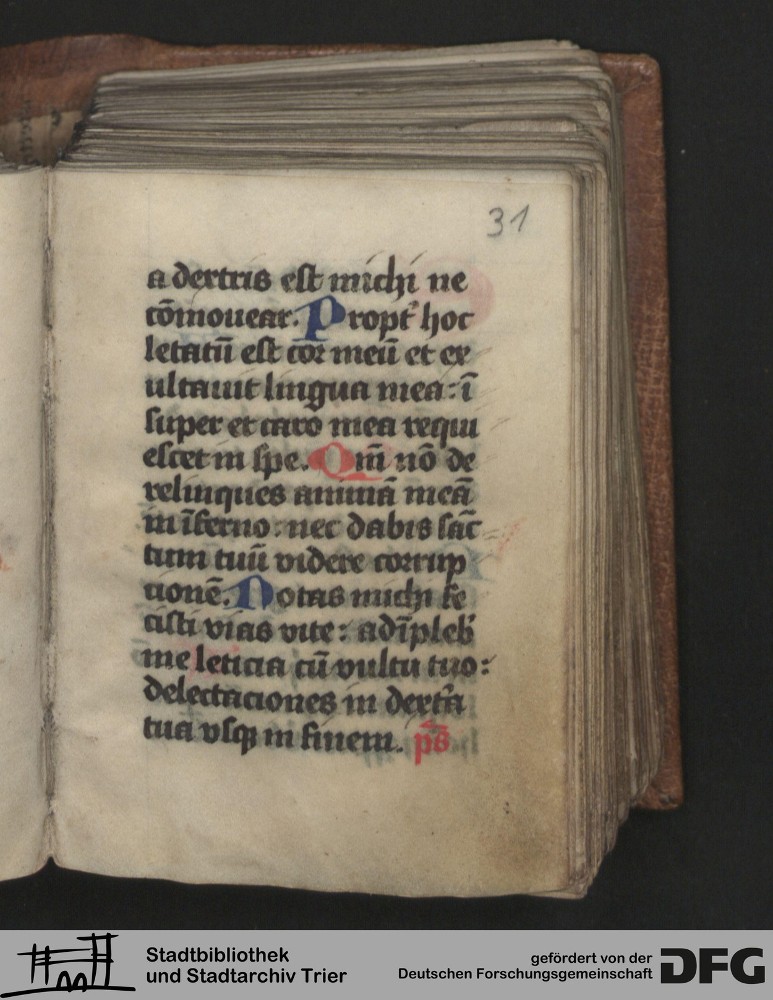 31
a dextris est michi ne
cōmouear. Propt̓ hoc
letatū est cor meū et ex
ultauit lingua mea: ī
super et caro mea requi
escet in spe. Qm̄ nō de
relinques animā meā
in īferno: nec dabis sāc
tum tuū videre corrup
cionē. Notas michi fe
cisti vias vite: adīpleb̓
me leticia cū vultu tuo:
delectaciones in dext̓a
tua vsqꝫ in finem. ps̄
Stadtbibliothek
und Stadtarchiv Trier
gefördert von der
Deutschen Forschungsgemeinschaft
DFG